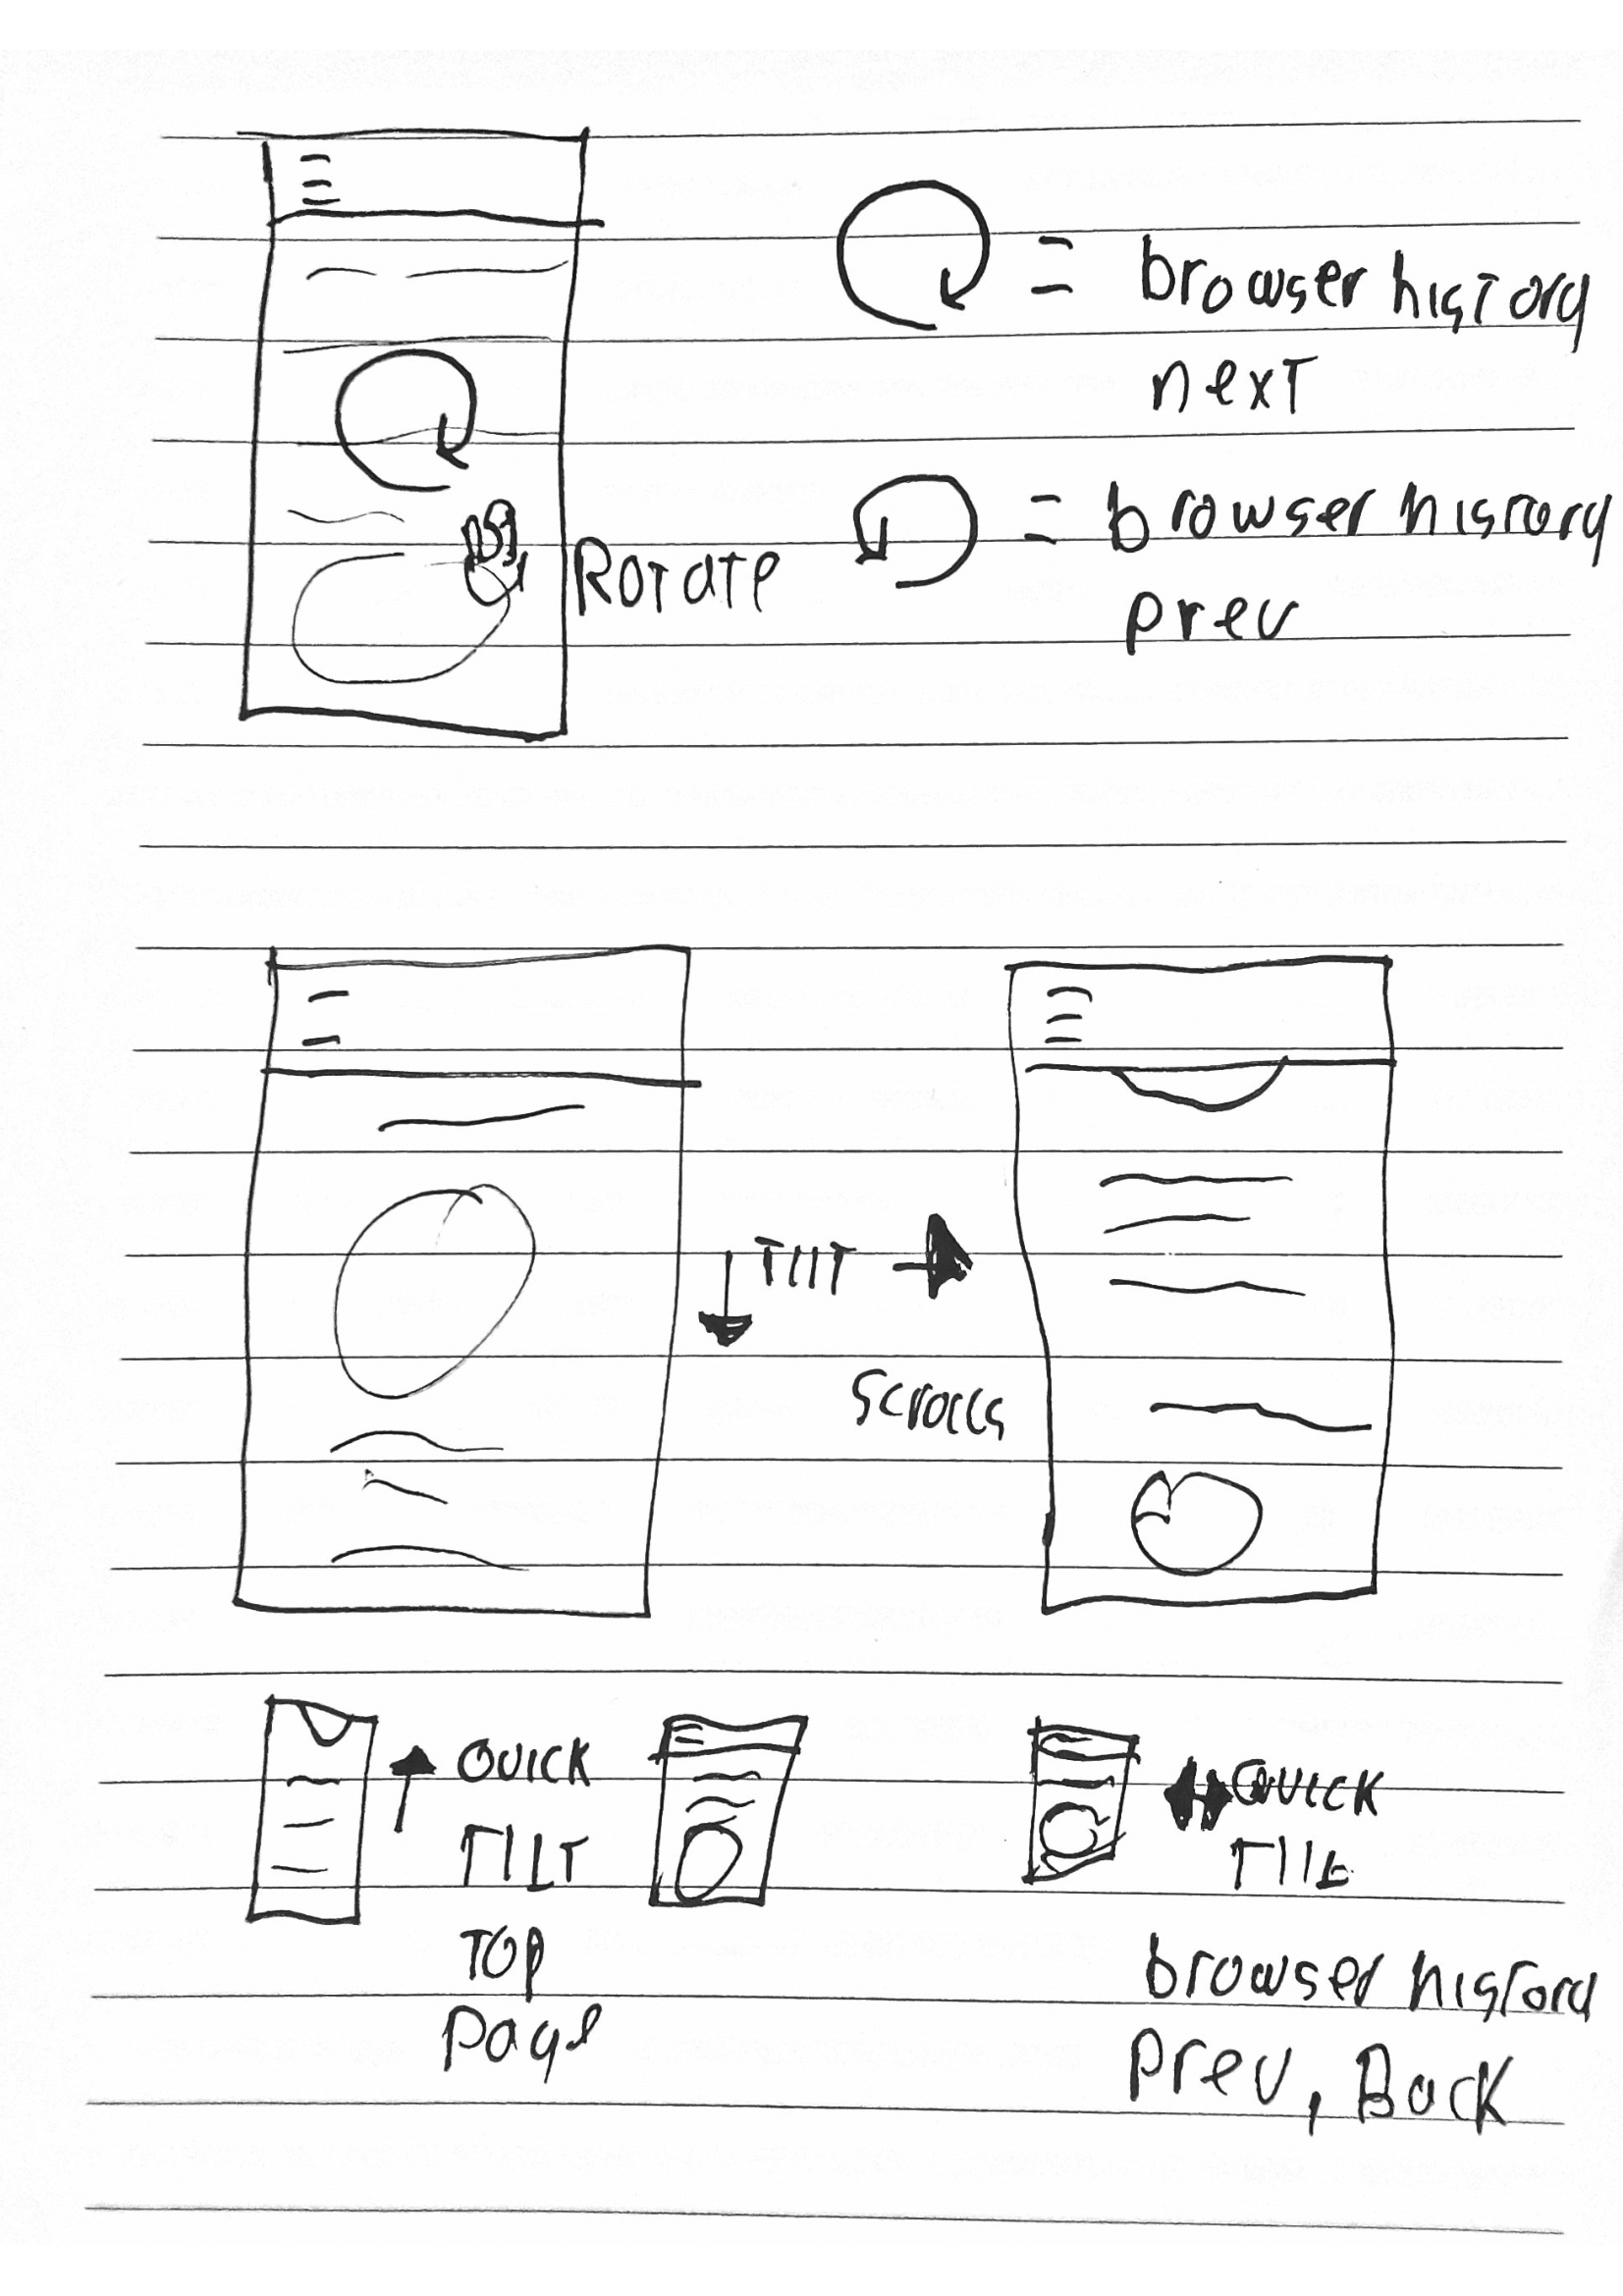 = browser history
next
Rotate
= browser history
prev
TILT
scrolls
QUICK
TILT
TOP
page
QUICK
TILt
browser history
prev, Back